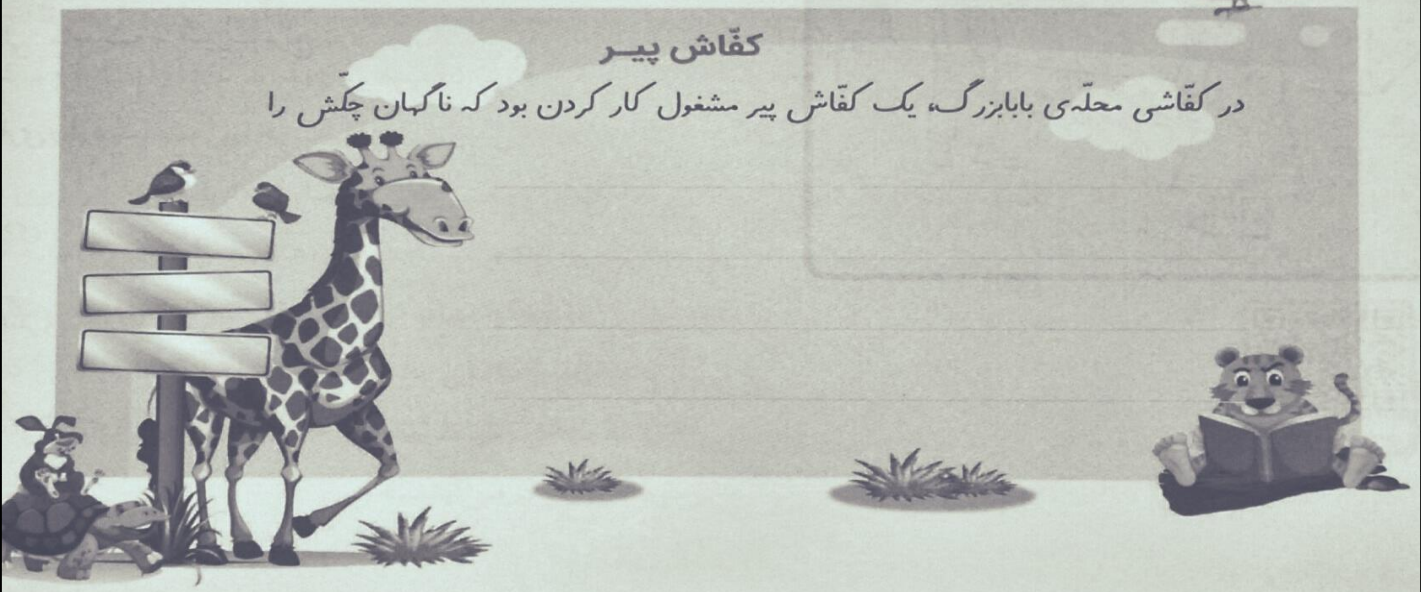 کفّاش پیــر
در کفّاشی محلّه‌ی بابابزرگ، یک کفّاش پیر مشغول کار کردن بود که ناگهان چکّش را